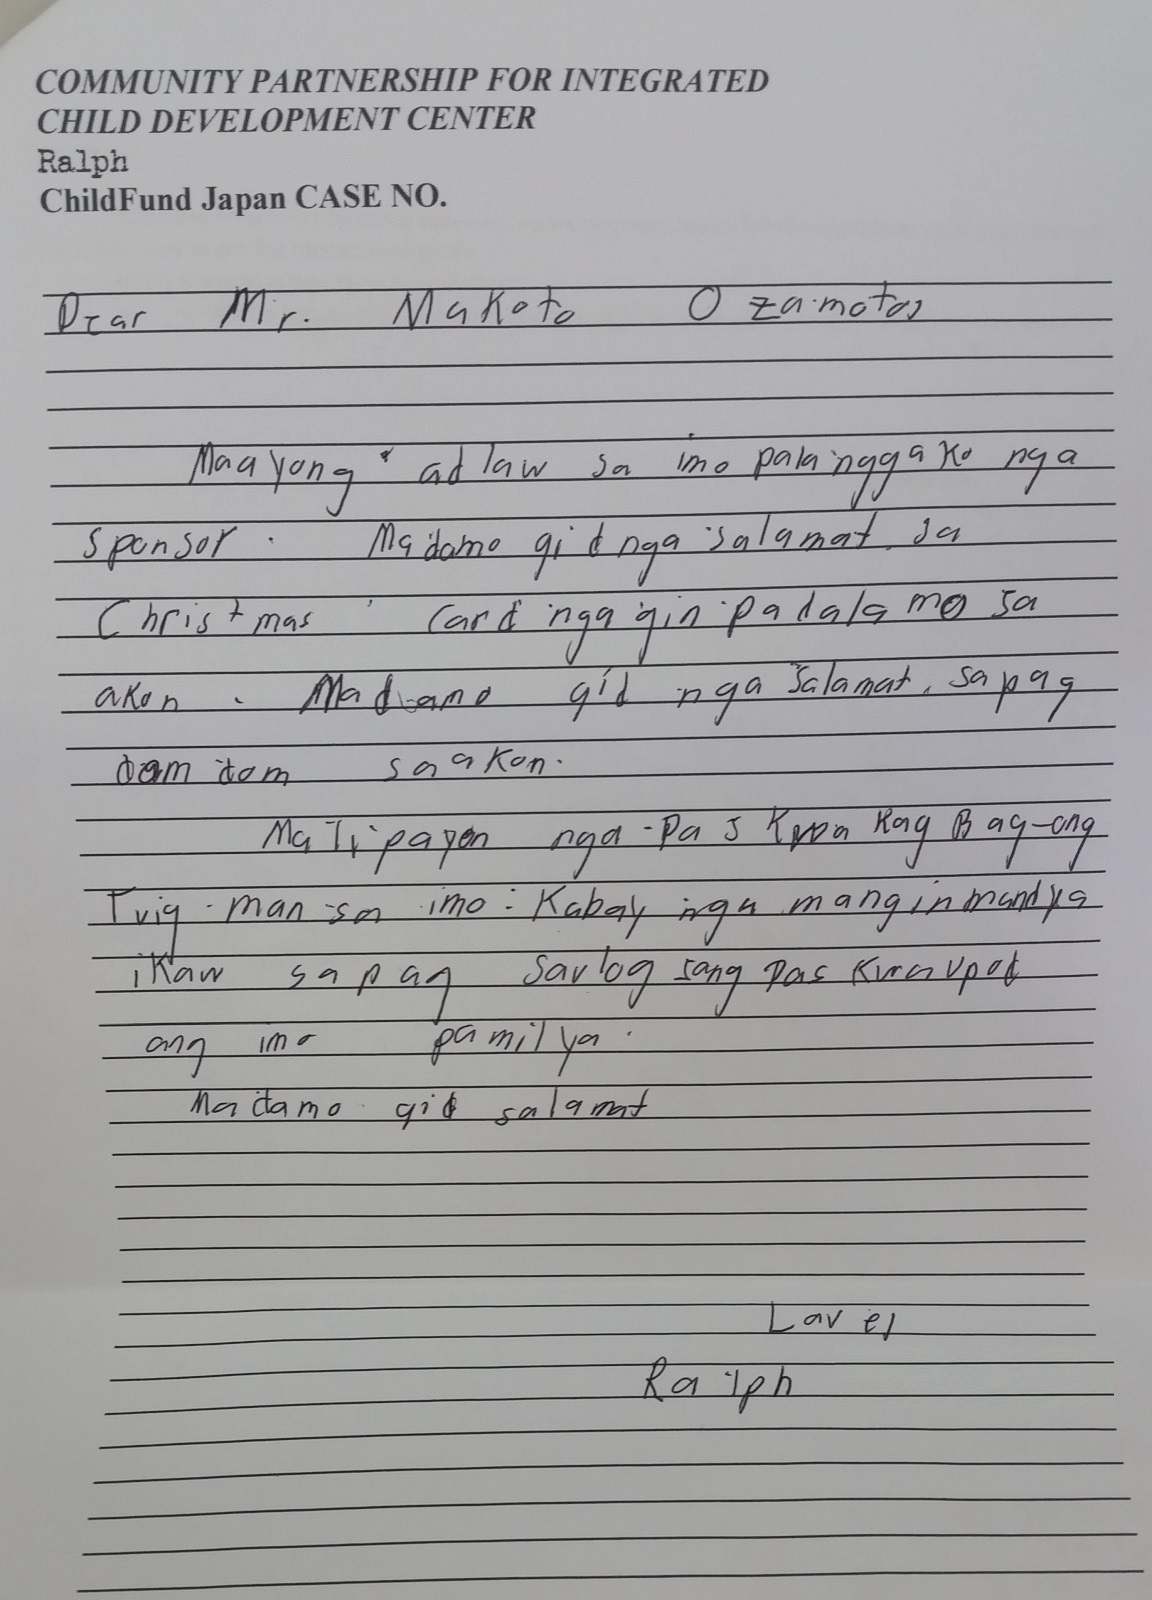 COMMUNITY PARTNERSHIP FOR INTEGRATED
CHILD DEVELOPMENT CENTER
Ralph
ChildFund Japan CASE NO.
Dear Mr. Makoto Ozamotas
Maayong adlaw sa imo palaingga ko nga
Sponsor. Madamo gid nga salamat sa
Christmas card nga ginpadala mo sa
akon. Madamo gid nga salamat, sa pag
dom dom sa akon.
Malipayon nga Paskwa kag Bag-ong
Tuig man sa imo. Kabay nga mangin mundya
ikaw sa pag Saulog sang Paskwa upod
ang imo pamilya.
Madamo gid salamat
Lavel
Ralph